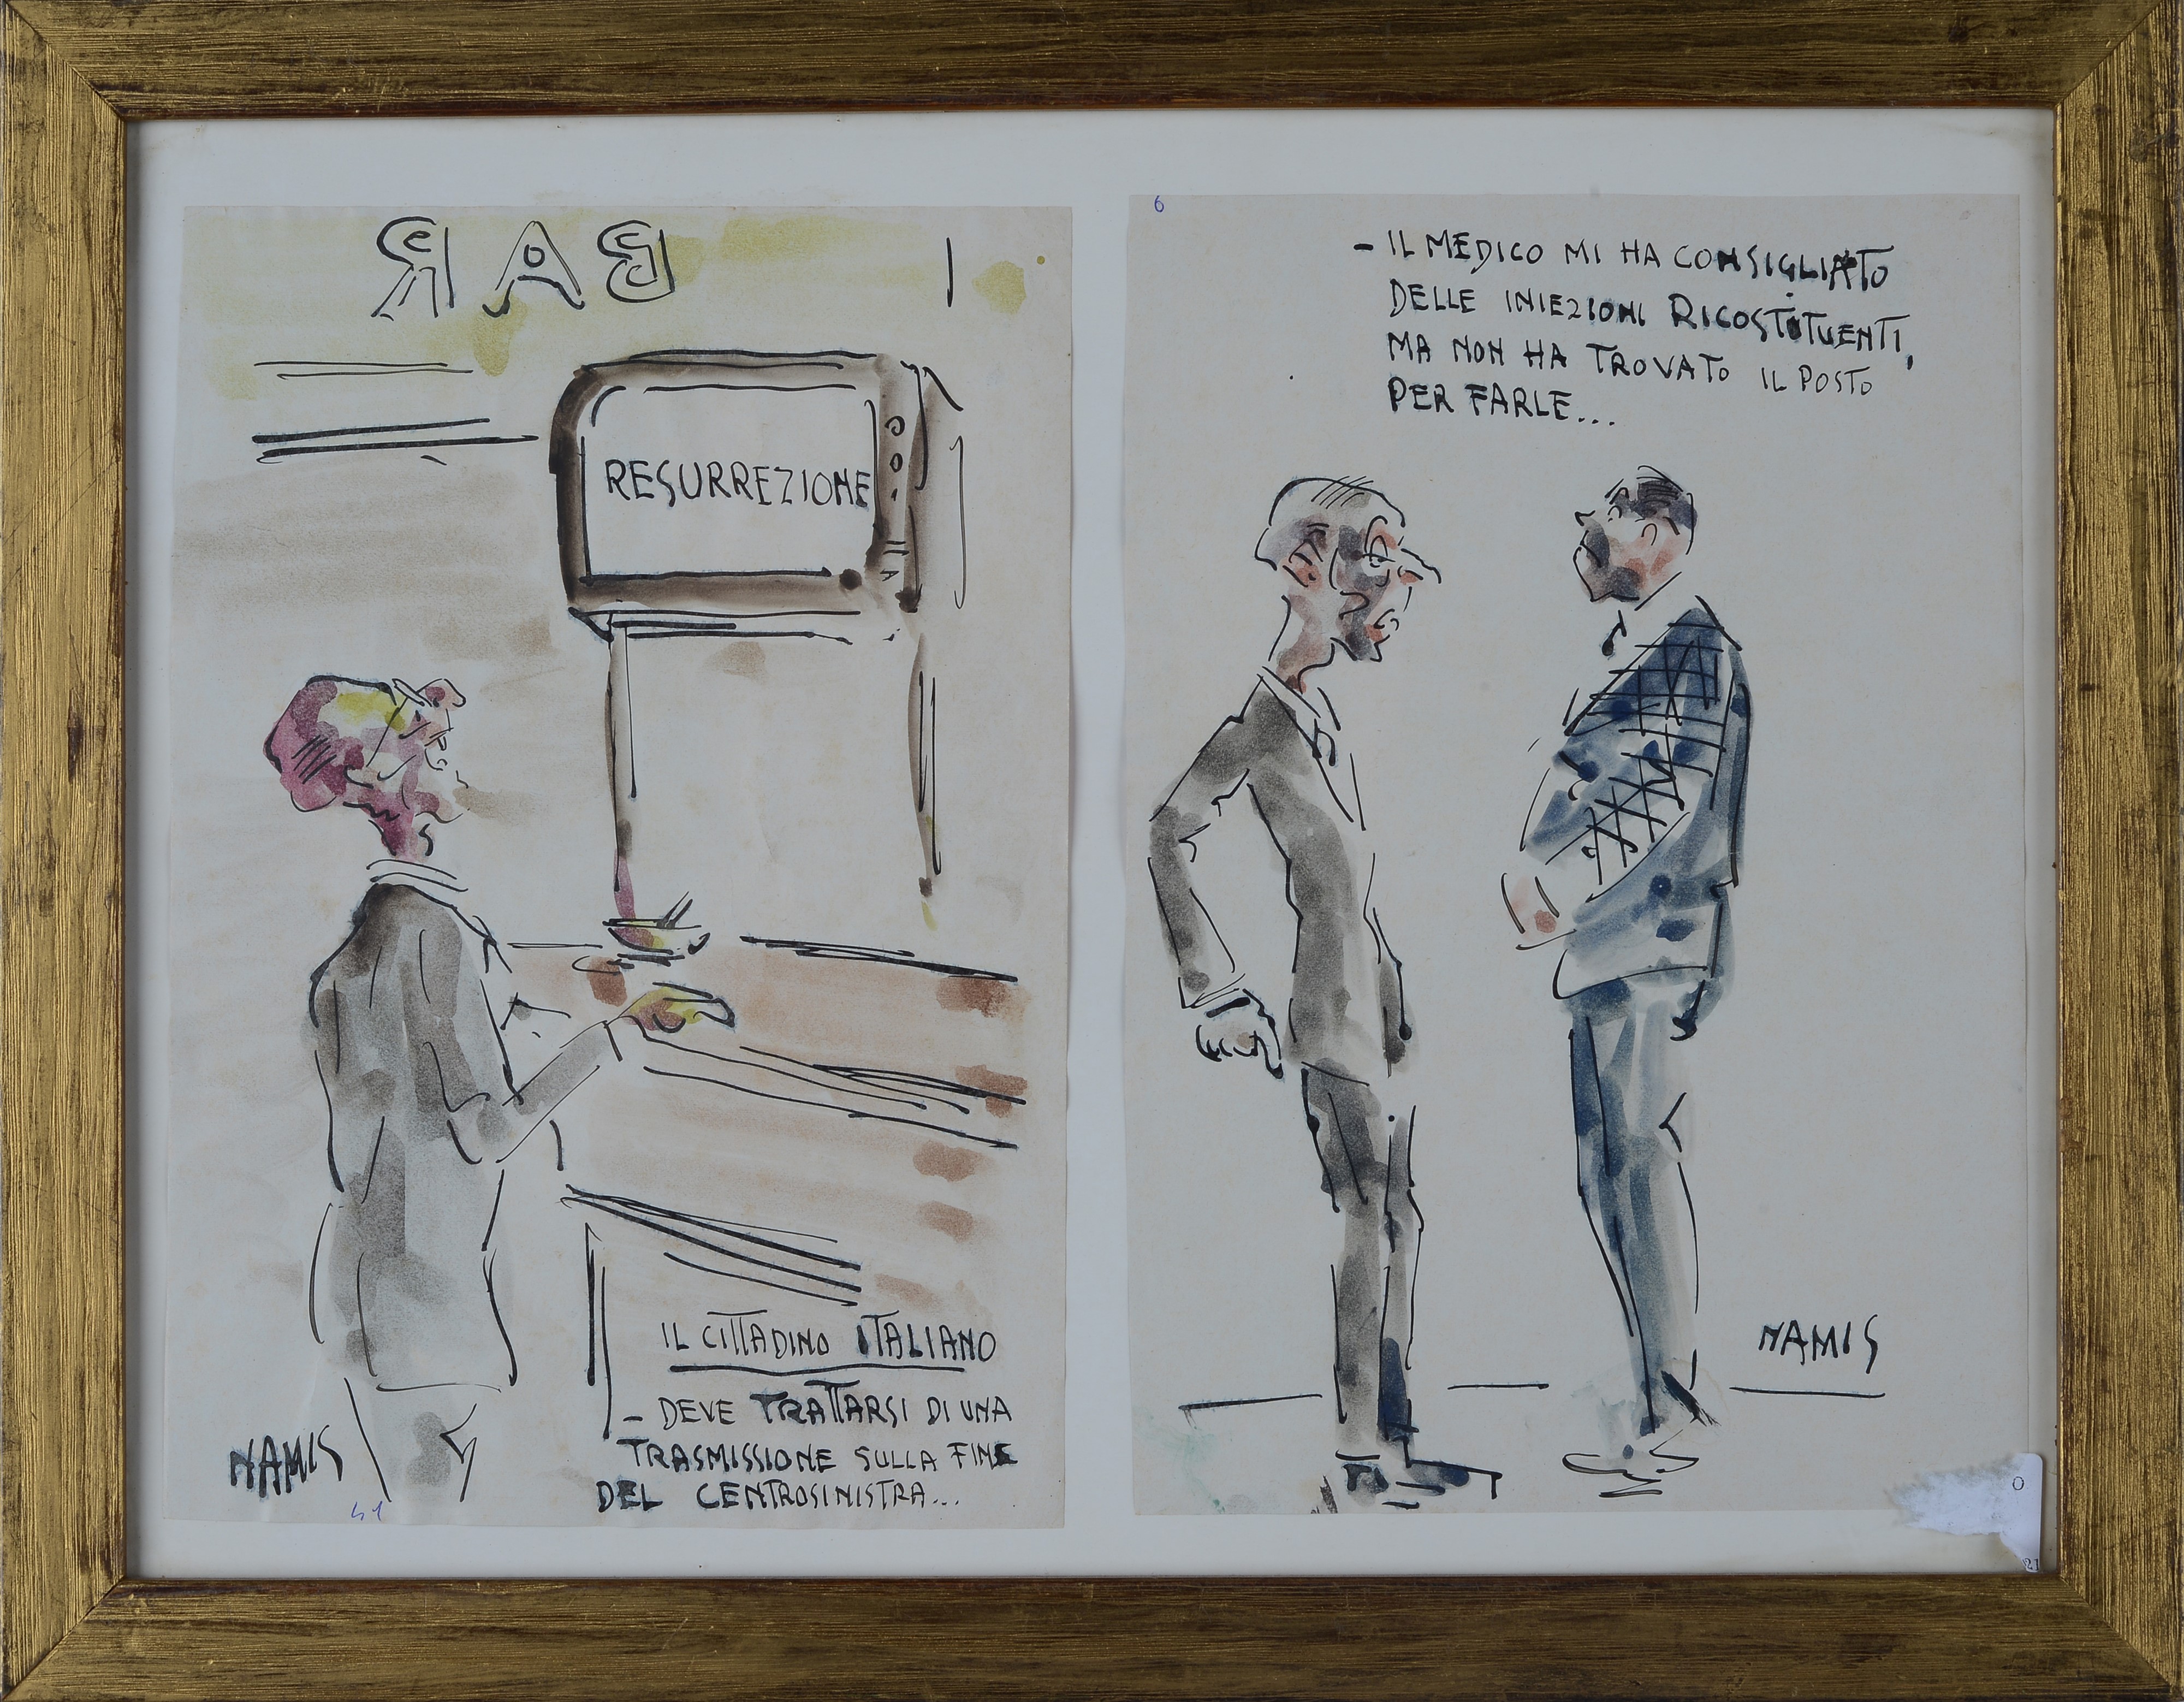 BAR
RESURREZIONE
IL CITTADINO ITALIANO
- DEVE TRATTARSI DI UNA
TRASMISSIONE SULLA FINE
DEL CENTROSINISTRA...
NAMIS
41
6
- IL MEDICO MI HA CONSIGLIATO
DELLE INIEZIONI RICOSTITUENTI,
MA NON HA TROVATO IL POSTO
PER FARLE...
NAMIS
O
21